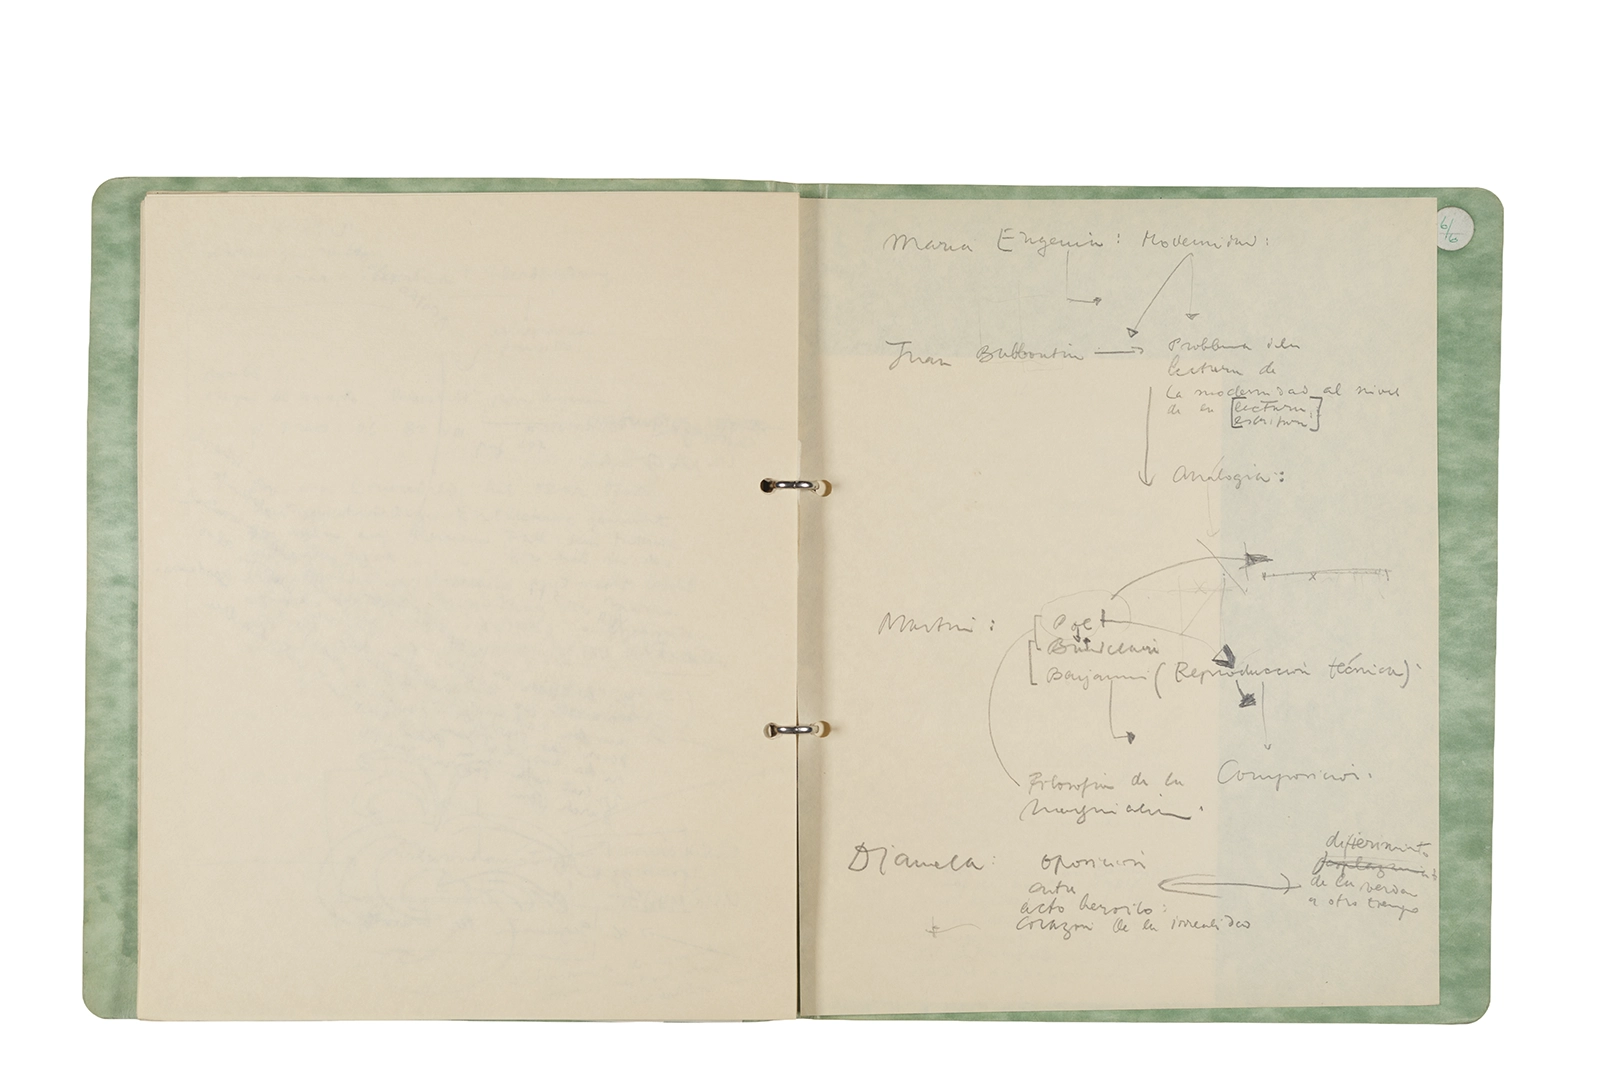 6/6
Maria Eugenia: Modernidad:
Juan Balbontin
Problema de la
lectura de
La modernidad al nivel
de la [lectura,
escritura]
Analogía:
Martin:
Poe
Baudelaire
Benjamin (Reproducción técnica):
Filosofia de la
Composición.
Diamela:
oposición
entre
acto heroico:
corazon de la irrealidad
diferimiento
desplazamiento
de la verdad
a otro tiempo